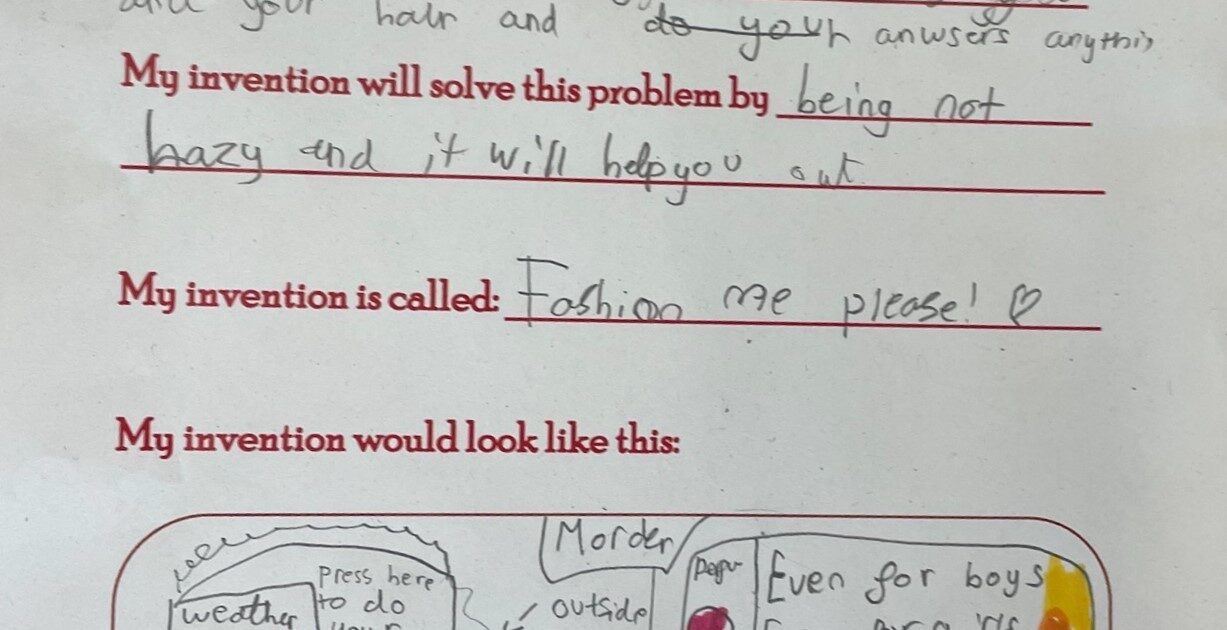 your hair and do your anwsers anythis
My invention will solve this problem by being not
hazy and it will help you out
My invention is called: Fashion me please! ♡
My invention would look like this:
Morder
press here
Even for boys
weather
to do
outside